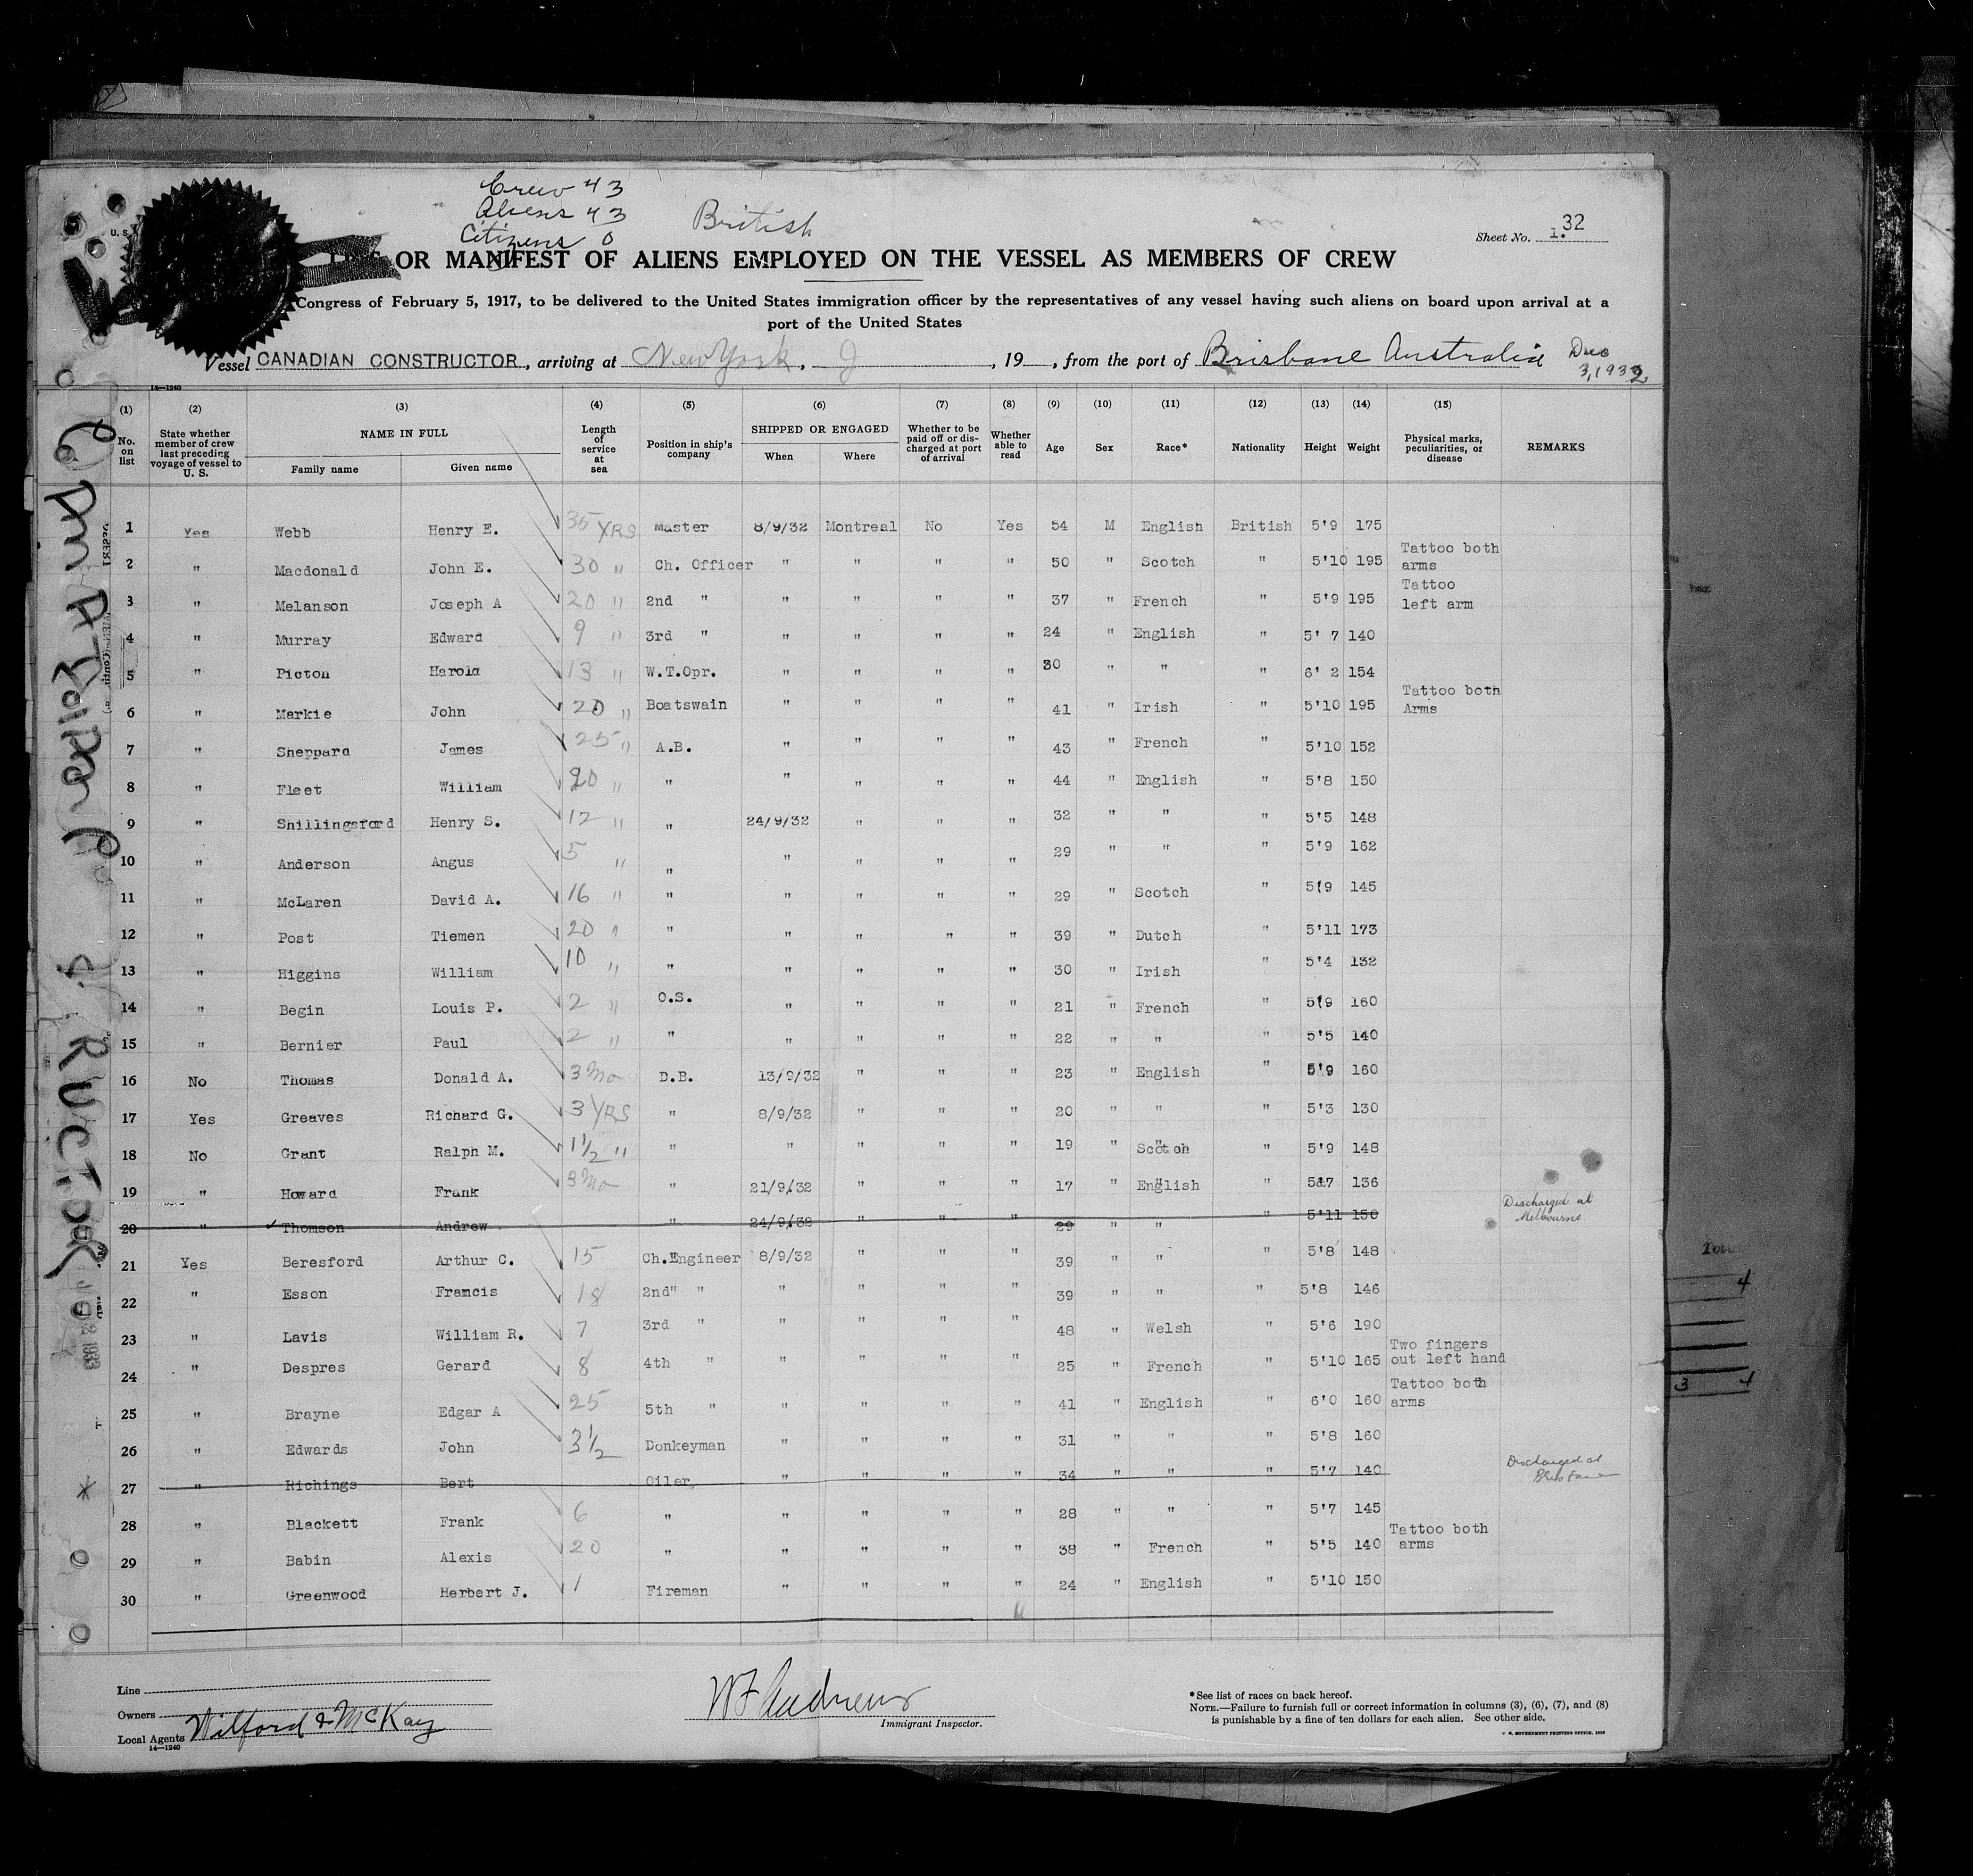 Crew 43
Aliens 43
Citizens 0
British
U. S.
Sheet No. 1. 32
OR MANIFEST OF ALIENS EMPLOYED ON THE VESSEL AS MEMBERS OF CREW
Congress of February 5, 1917, to be delivered to the United States immigration officer by the representatives of any vessel having such aliens on board upon arrival at a
port of the United States
Vessel CANADIAN CONSTRUCTOR, arriving at New York, , 19 , from the port of Brisbane Australia Dec 3, 1932
14—1240
(1) (2) (3) (4) (5) (6) (7) (8) (9) (10) (11) (12) (13) (14) (15)
No. on list | State whether member of crew last preceding voyage of vessel to U. S. | NAME IN FULL Family name Given name | Length of service at sea | Position in ship's company | SHIPPED OR ENGAGED When Where | Whether to be paid off or discharged at port of arrival | Whether able to read | Age | Sex | Race* | Nationality | Height | Weight | Physical marks, peculiarities, or disease | REMARKS
1 Yes Webb Henry E. 35 YRS Master 8/9/32 Montreal No Yes 54 M English British 5'9 175
2 " Macdonald John E. 30 " Ch. Officer " " " " 50 " Scotch " 5'10 195 Tattoo both arms
3 " Melanson Joseph A 20 " 2nd " " " " " 37 " French " 5'9 195 Tattoo left arm
4 " Murray Edward 9 " 3rd " " " " " 24 " English " 5' 7 140
5 " Picton Harold 13 " W.T.Opr. " " " " 30 " " " 6' 2 154
6 " Markie John 20 " Boatswain " " " " 41 " Irish " 5'10 195 Tattoo both Arms
7 " Sheppard James 25 " A.B. " " " " 43 " French " 5'10 152
8 " Fleet William 20 " " " " " " 44 " English " 5'8 150
9 " Shillingsford Henry S. 12 " " 24/9/32 " " " 32 " " " 5'5 148
10 " Anderson Angus 5 " " " " " " 29 " " " 5'9 162
11 " McLaren David A. 16 " " " " " " 29 " Scotch " 5'9 145
12 " Post Tiemen 20 " " " " " " 39 " Dutch " 5'11 173
13 " Higgins William 10 " " " " " " 30 " Irish " 5'4 132
14 " Begin Louis P. 2 " O.S. " " " " 21 " French " 5'9 160
15 " Bernier Paul 2 " " " " " " 22 " " " 5'5 140
16 No Thomas Donald A. 3 Mo D.B. 13/9/32 " " " 23 " English " 5'9 160
17 Yes Greaves Richard G. 3 YRS " 8/9/32 " " " 20 " " " 5'3 130
18 No Grant Ralph M. 1½ " " " " " " 19 " Scotch " 5'9 148
19 " Howard Frank 3 Mo " 21/9/32 " " " 17 " English " 5'7 136
20 " Thomson Andrew " 24/9/32 " " " 29 " " " 5'11 150 Discharged at Melbourne
21 Yes Beresford Arthur C. 15 Ch.Engineer 8/9/32 " " " 39 " " " 5'8 148
22 " Esson Francis 18 2nd" " " " " " 39 " " " 5'8 146
23 " Lavis William R. 7 3rd " " " " " 48 " Welsh " 5'6 190
24 " Despres Gerard 8 4th " " " " " 25 " French " 5'10 165 Two fingers out left hand
25 " Brayne Edgar A 25 5th " " " " " 41 " English " 6'0 160 Tattoo both arms
26 " Edwards John 3½ Donkeyman " " " " 31 " " " 5'8 160
27 " Richings Bert Oiler " " " " 34 " " " 5'7 140 Discharged at Brisbane
28 " Blackett Frank 6 " " " " " 28 " " " 5'7 145
29 " Babin Alexis 20 " " " " " 38 " French " 5'5 140 Tattoo both arms
30 " Greenwood Herbert J. 1 Fireman " " " " 24 " English " 5'10 150
Line
Owners
Local Agents Wilford & McKay
14—1240
W F Andrews
Immigrant Inspector.
*See list of races on back hereof.
NOTE.—Failure to furnish full or correct information in columns (3), (6), (7), and (8)
is punishable by a fine of ten dollars for each alien. See other side.
U. S. GOVERNMENT PRINTING OFFICE.